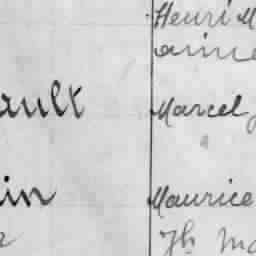 Henri M
aime
ault Marcel
in Maurice
Th Ma